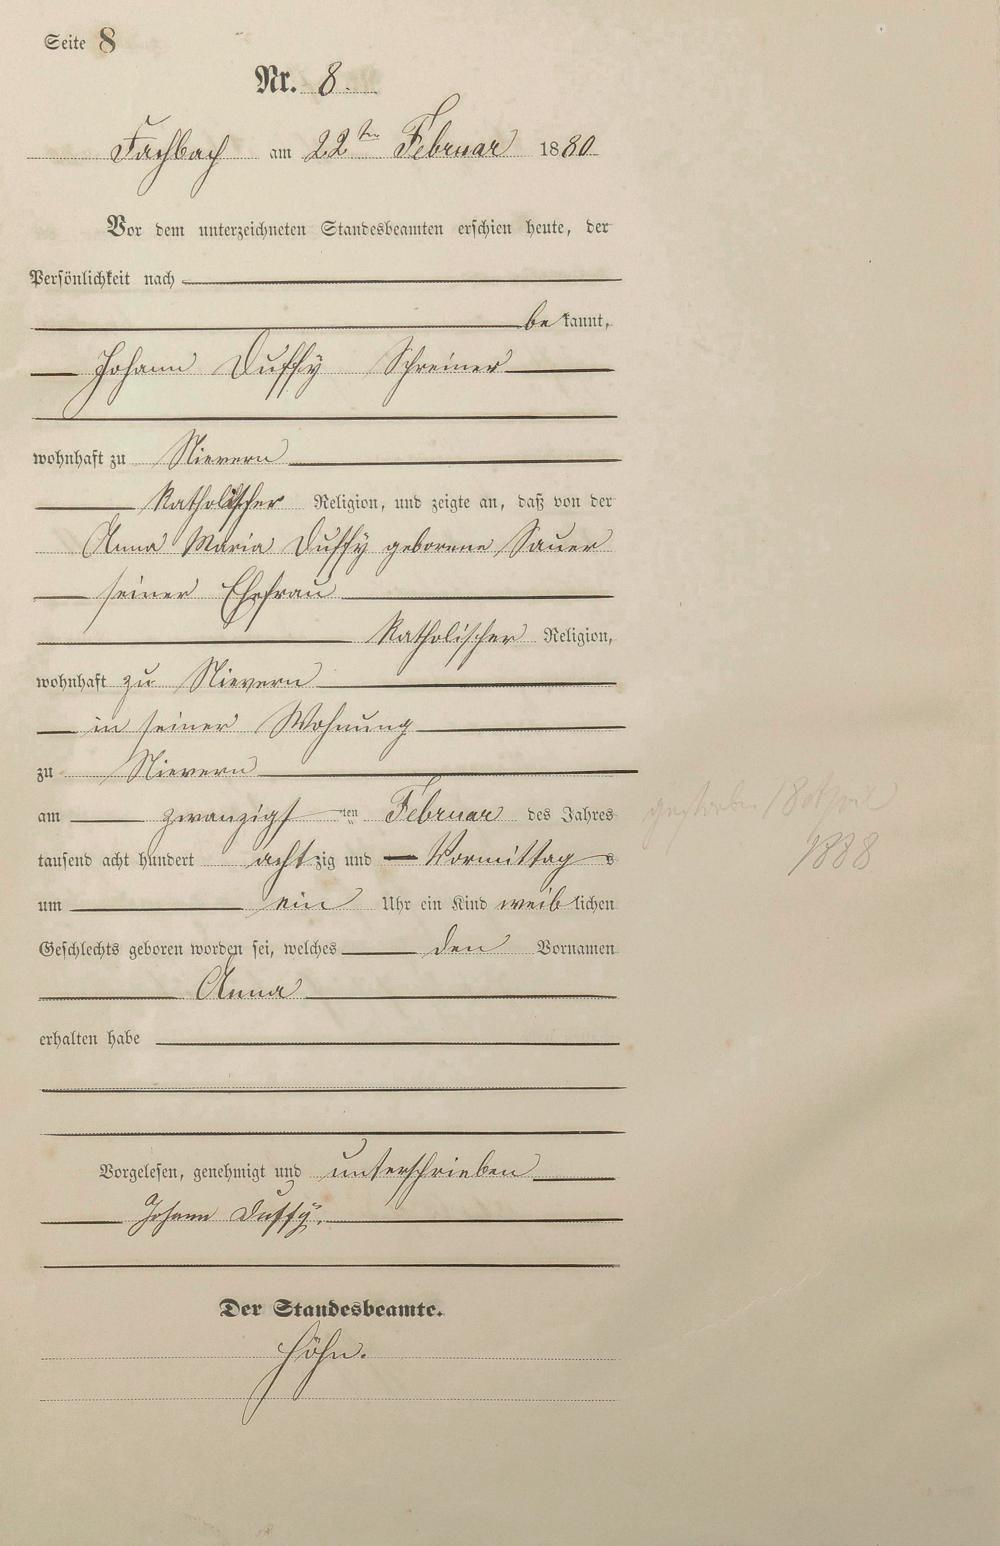 Seite 8
Nr. 8.
Fachbach am 22ten Februar 1880
Vor dem unterzeichneten Standesbeamten erschien heute, der
Persönlichkeit nach
be kannt,
Johann Duffy Schreiner
wohnhaft zu Nievern
Katholischer Religion, und zeigte an, daß von der
Anna Maria Duffy geborene Sauer
seiner Ehefrau
Katholischer Religion,
wohnhaft zu Nievern
in seiner Wohnung
zu Nievern
am zwanzigsten Februar des Jahres
tausend acht hundert achtzig und Vormittags
um ein Uhr ein Kind weiblichen
Geschlechts geboren worden sei, welches den Vornamen
Anna
erhalten habe
Vorgelesen, genehmigt und unterschrieben
Johann Duffy.
Der Standesbeamte.
Höhn.
gestorben 18 April
1888